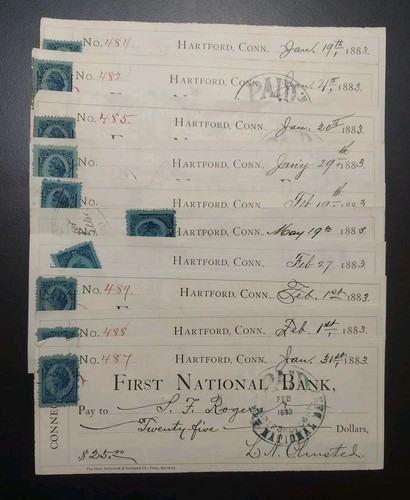 No. 484. HARTFORD, CONN. Jan. 19th, 1883.
No. 482 HARTFORD, CONN. Jan. 4th, 1883.
PAID
No. 485. HARTFORD, CONN. Jan. 20th 1883.
HARTFORD, CONN. Jan'y 29th 1883.
HARTFORD, CONN. Feb 10th 1883
HARTFORD, CONN. May 19th 188
HARTFORD, CONN. Feb 27 1883.
No. 489. HARTFORD, CONN. Feb. 1st 1883.
No. 488 HARTFORD, CONN. Feb. 1st, 1883
No. 487 HARTFORD, CONN. Jan. 31st, 1883.
FIRST NATIONAL BANK,
PAID
FEB
1883
NATIONAL
Pay to S. F. Rogers
Twenty five Dollars,
$25.00 L. N. Olmsted
CONNEC